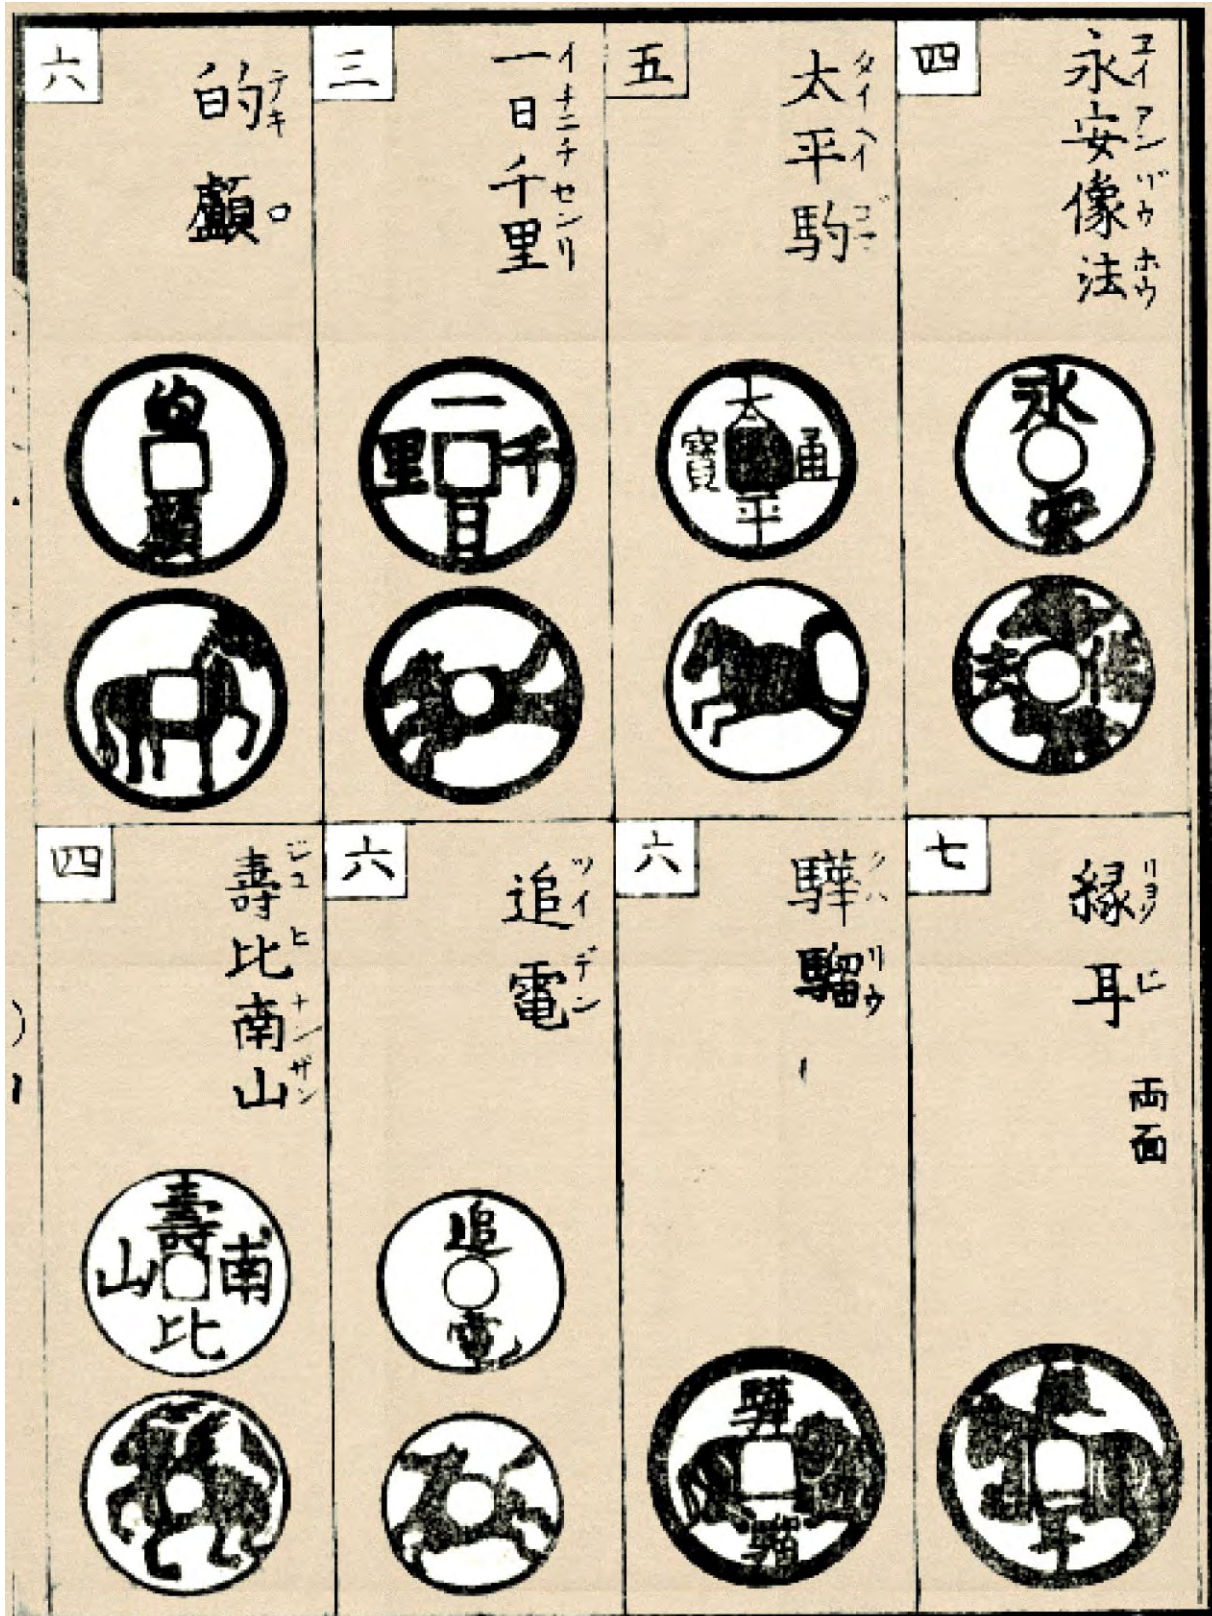 四
永安像法
ヱイアンゾウホウ
永
安
法
像
五
太平駒
タイヘイゴマ
太
平
通
寳
三
一日千里
イチニチセンリ
一
日
千
里
六
的顱
テキロ
的
顱
七
縁耳
リヨクジ
両面
耳
六
驊騮
クハリウ
驊
騮
六
追電
ツイデン
追
電
四
壽比南山
ジユヒナンザン
壽
比
南
山